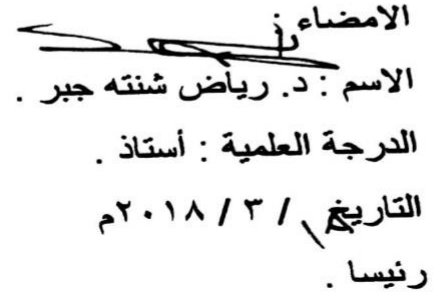 الامضاء :
الاسم : د. رياض شنته جبر .
الدرجة العلمية : أستاذ .
التاريخ / ٣ / ٢٠١٨م
رئيسا .